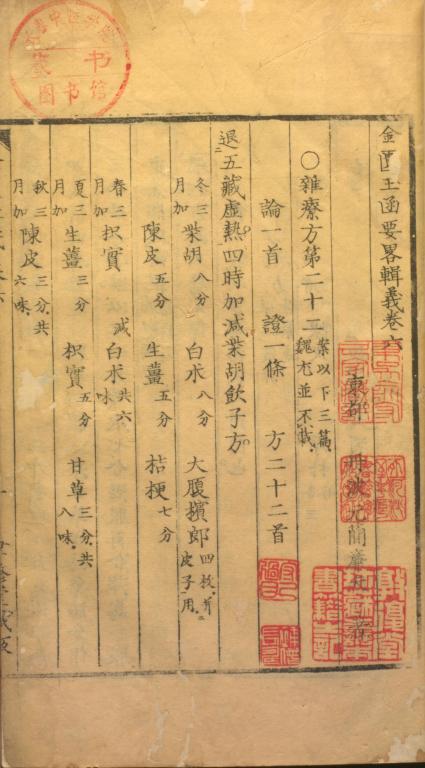 金匱玉函要畧輯義卷六
東都 丹波元簡廉夫 著
○雜療方第二十三案以下三篇魏尤並不載
論一首 證一條 方二十二首
退五藏虛熱四時加減柴胡飲子方
冬三月加柴胡八分 白朮八分 大腹檳郎四枚并皮子用
陳皮五分 生薑五分 桔梗七分
春三月加枳實 減白朮共六味
夏三月加生薑三分 枳實五分 甘草三分共八味
秋三月加陳皮三分共六味
书 图书馆